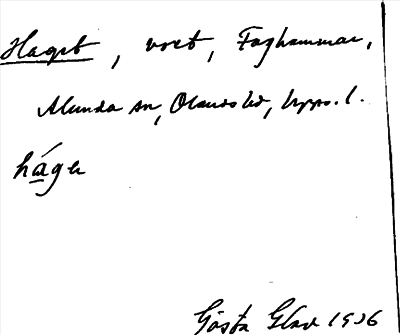 Haget, vret, Faghammar,
Alunda sn, Olands hd, Upps. l.
háge
Gösta Glad 1936